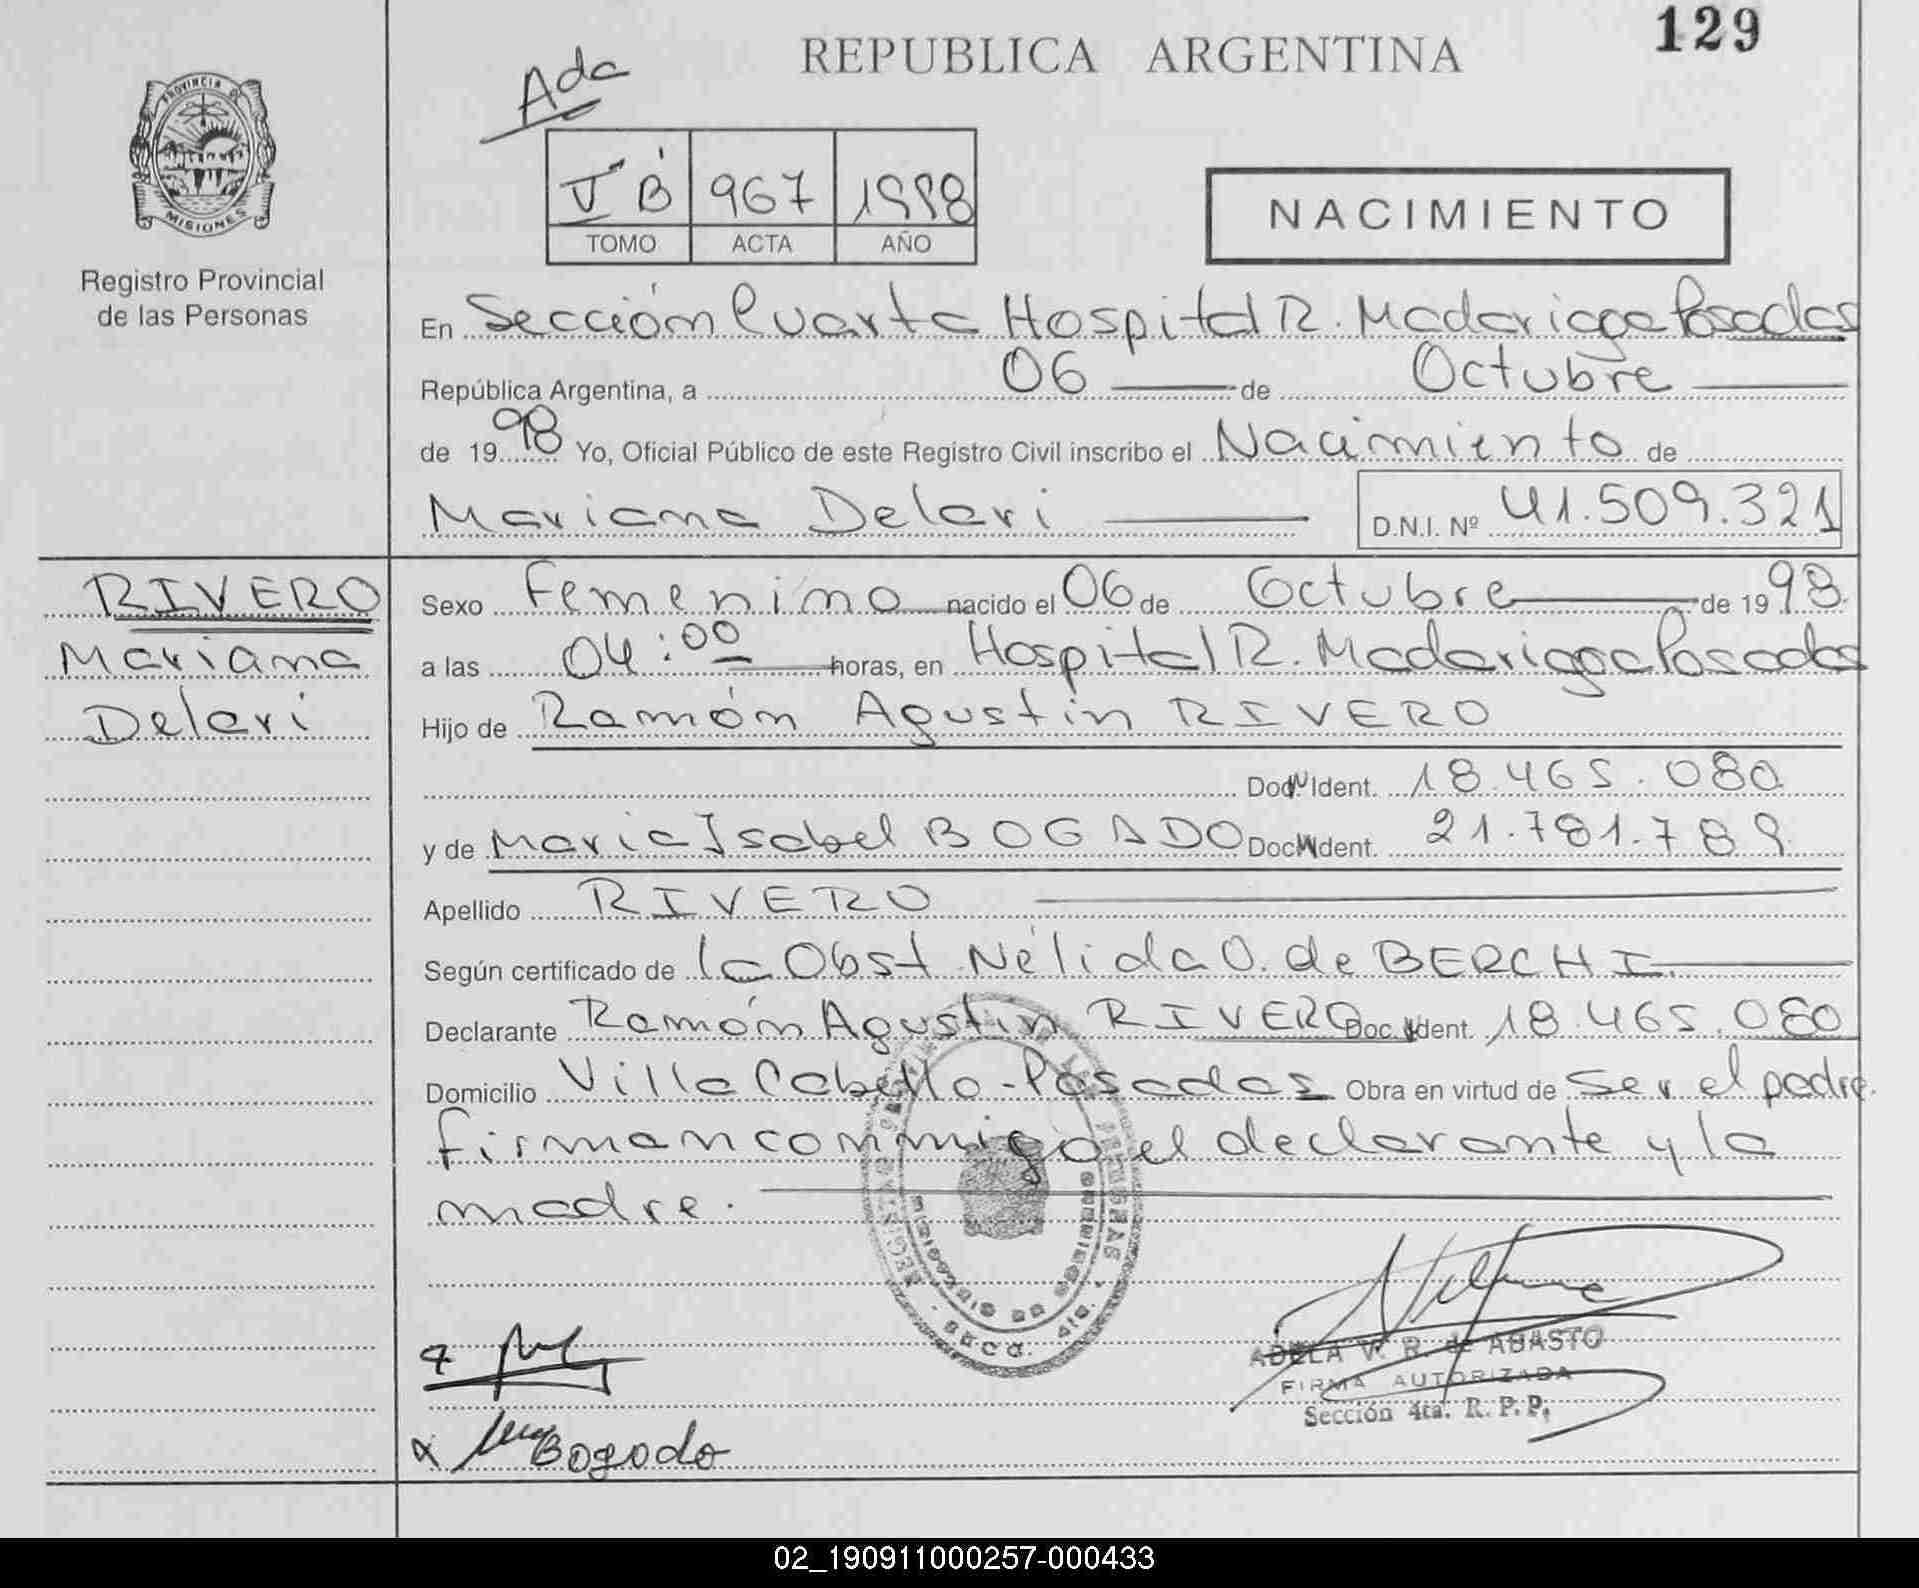 129
REPUBLICA ARGENTINA
Ada
PROVINCIA DE
MISIONES
V B 967 1998
TOMO ACTA AÑO
NACIMIENTO
Registro Provincial
de las Personas
En Sección Cuarta Hospital R. Madariaga Posadas
República Argentina, a 06 de Octubre
de 1998 Yo, Oficial Público de este Registro Civil inscribo el Nacimiento de
Mariana Delari D.N.I. Nº 41.509.321
RIVERO
Mariana
Delari
Sexo Femenino nacido el 06 de Octubre de 1998
a las 04:00 horas, en Hospital R. Madariaga Posadas
Hijo de Ramón Agustin RIVERO
Doc. Ident. 18.465.080
y de Maria Isabel BOGADO Doc. Ident. 21.781.789
Apellido RIVERO
Según certificado de la Obst Nélida O. de BERCHI
Declarante Ramón Agustin RIVERO Doc. Ident. 18.465.080
Domicilio Villa Cabello - Posadas Obra en virtud de Ser el padre.
firman conmigo el declarante y la
madre.
SECC. 4ta.
ADELA V. R. de ABASTO
FIRMA AUTORIZADA
Sección 4ta. R. P. P.
Bogado
02_190911000257-000433